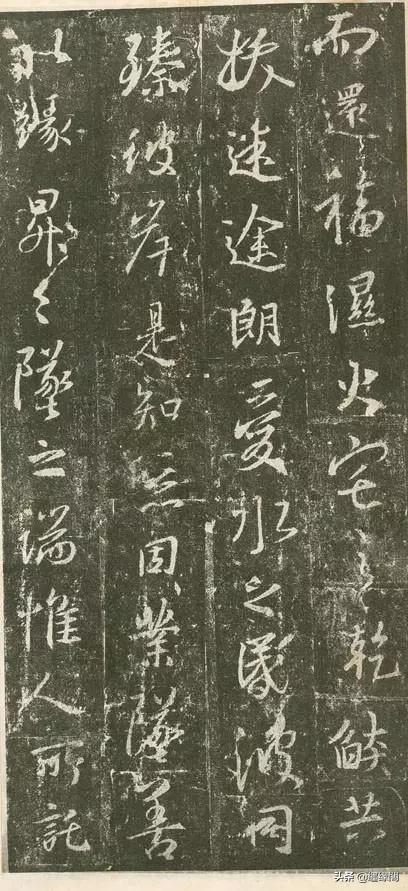 而還福濕火宅之乾燄共
拔迷途朗愛水之昏波同
臻彼岸是知惡因業墜善
以緣昇々墜之端惟人所託
头条